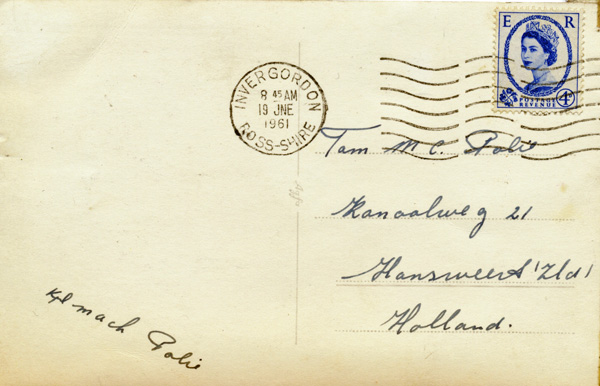 E R
POSTAGE
REVENUE
4D
INVERGORDON
8 45 AM
19 JNE
1961
ROSS-SHIRE
Fam M C. Polie
Kanaalweg 21
Hansweert 'Zld'
Holland.
Agfa
Kpl mach Polie